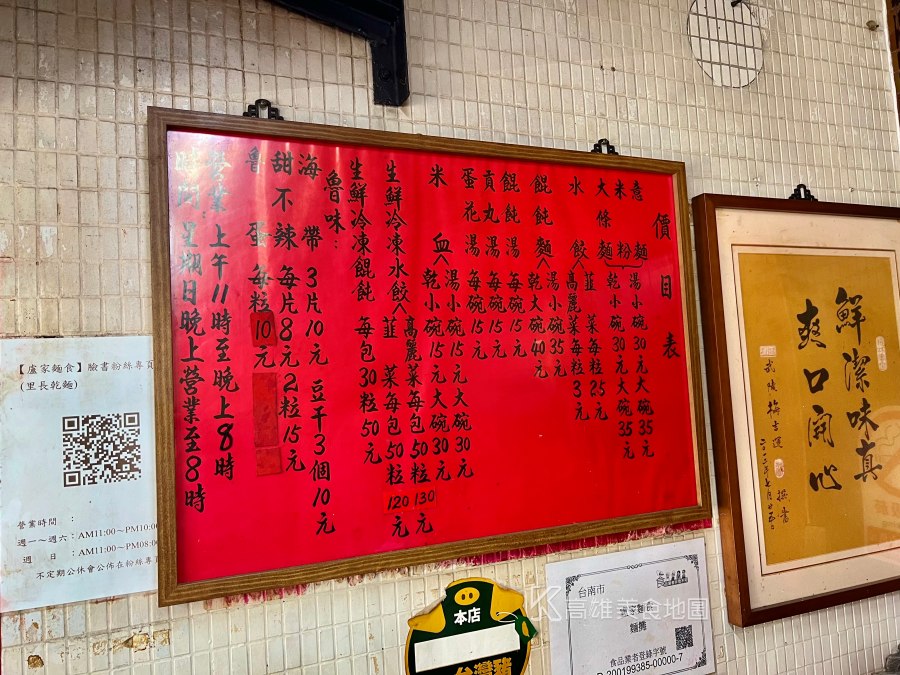 價目表
意麵
米粉
大條麵
湯小碗30元大碗35
乾小碗30元大碗35元
水餃
韮菜每粒2.5元
高麗菜每粒3元
餛飩麵
湯小碗35元
乾大碗40元
餛飩湯每碗15元
貢丸湯每碗15元
蛋花湯每碗15元
米血
湯小碗15元大碗30元
乾小碗15元大碗30元
生鮮冷凍水餃
高麗菜每包50粒130元
韮菜每包50粒120元
生鮮冷凍餛飩每包30粒50元
魯味:
海帶3片10元豆干3個10元
甜不辣每片8元2粒15元
魯蛋每粒10元
營業時間:上午11時至晚上8時
星期日晚上營業至8時
【盧家麵食】臉書粉絲專頁
(里長乾麵)
營業時間 :
週一~週六:AM11:00~PM10:00
週 日 :AM11:00~PM08:0
不定期公休會公佈在粉絲專頁
鮮潔味真
爽口開心
本店
台灣豬
台南市
麵攤
食品業者登錄字號
D-200199385-00000-7
高雄美食地圖